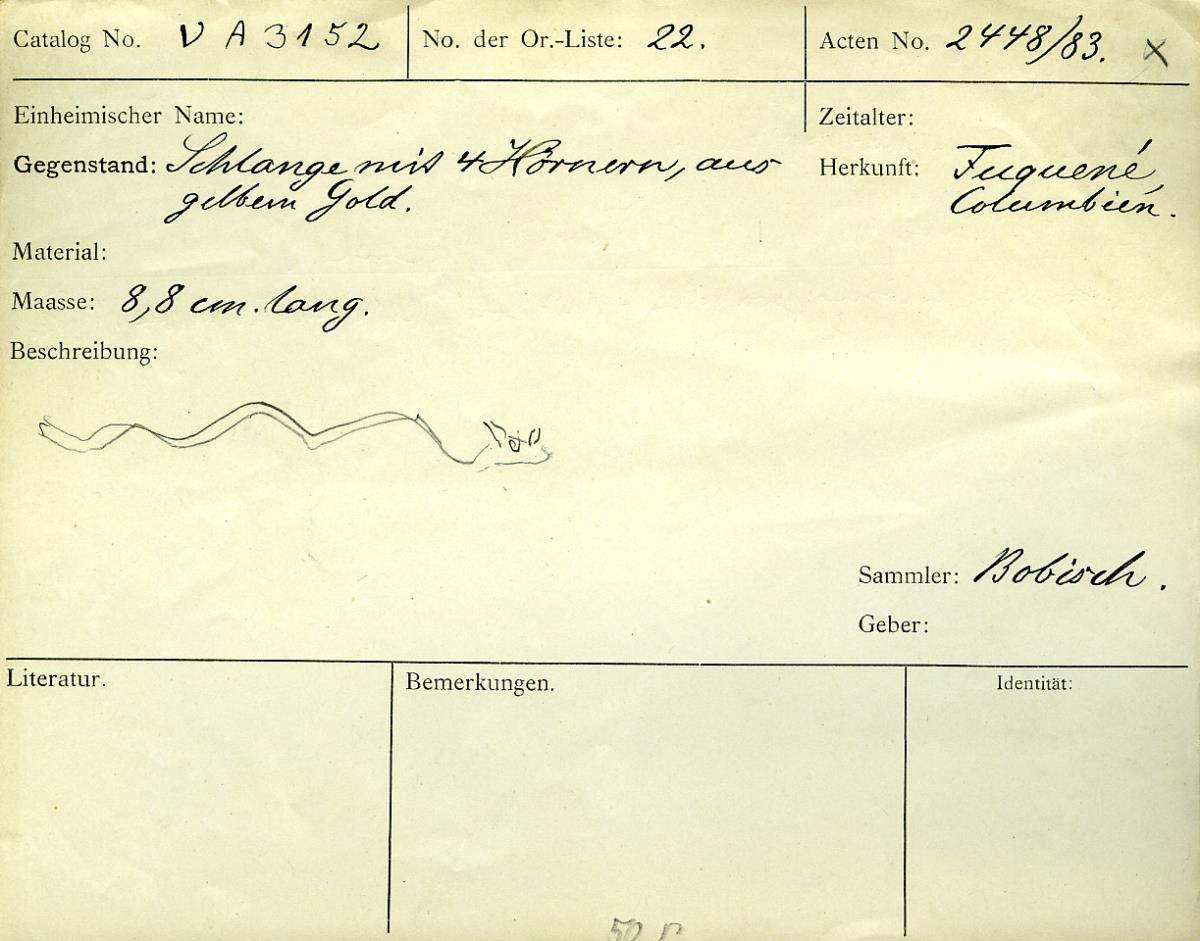 Catalog No. V A 3152 No. der Or.-Liste: 22. Acten No. 2448/83. X
Einheimischer Name: Zeitalter:
Gegenstand: Schlange mit 4 Hörnern, aus Herkunft: Fuquené,
gelbem Gold. Columbien.
Material:
Maasse: 8,8 cm. lang.
Beschreibung:
Sammler: Bobisch.
Geber:
Literatur. Bemerkungen. Identität: